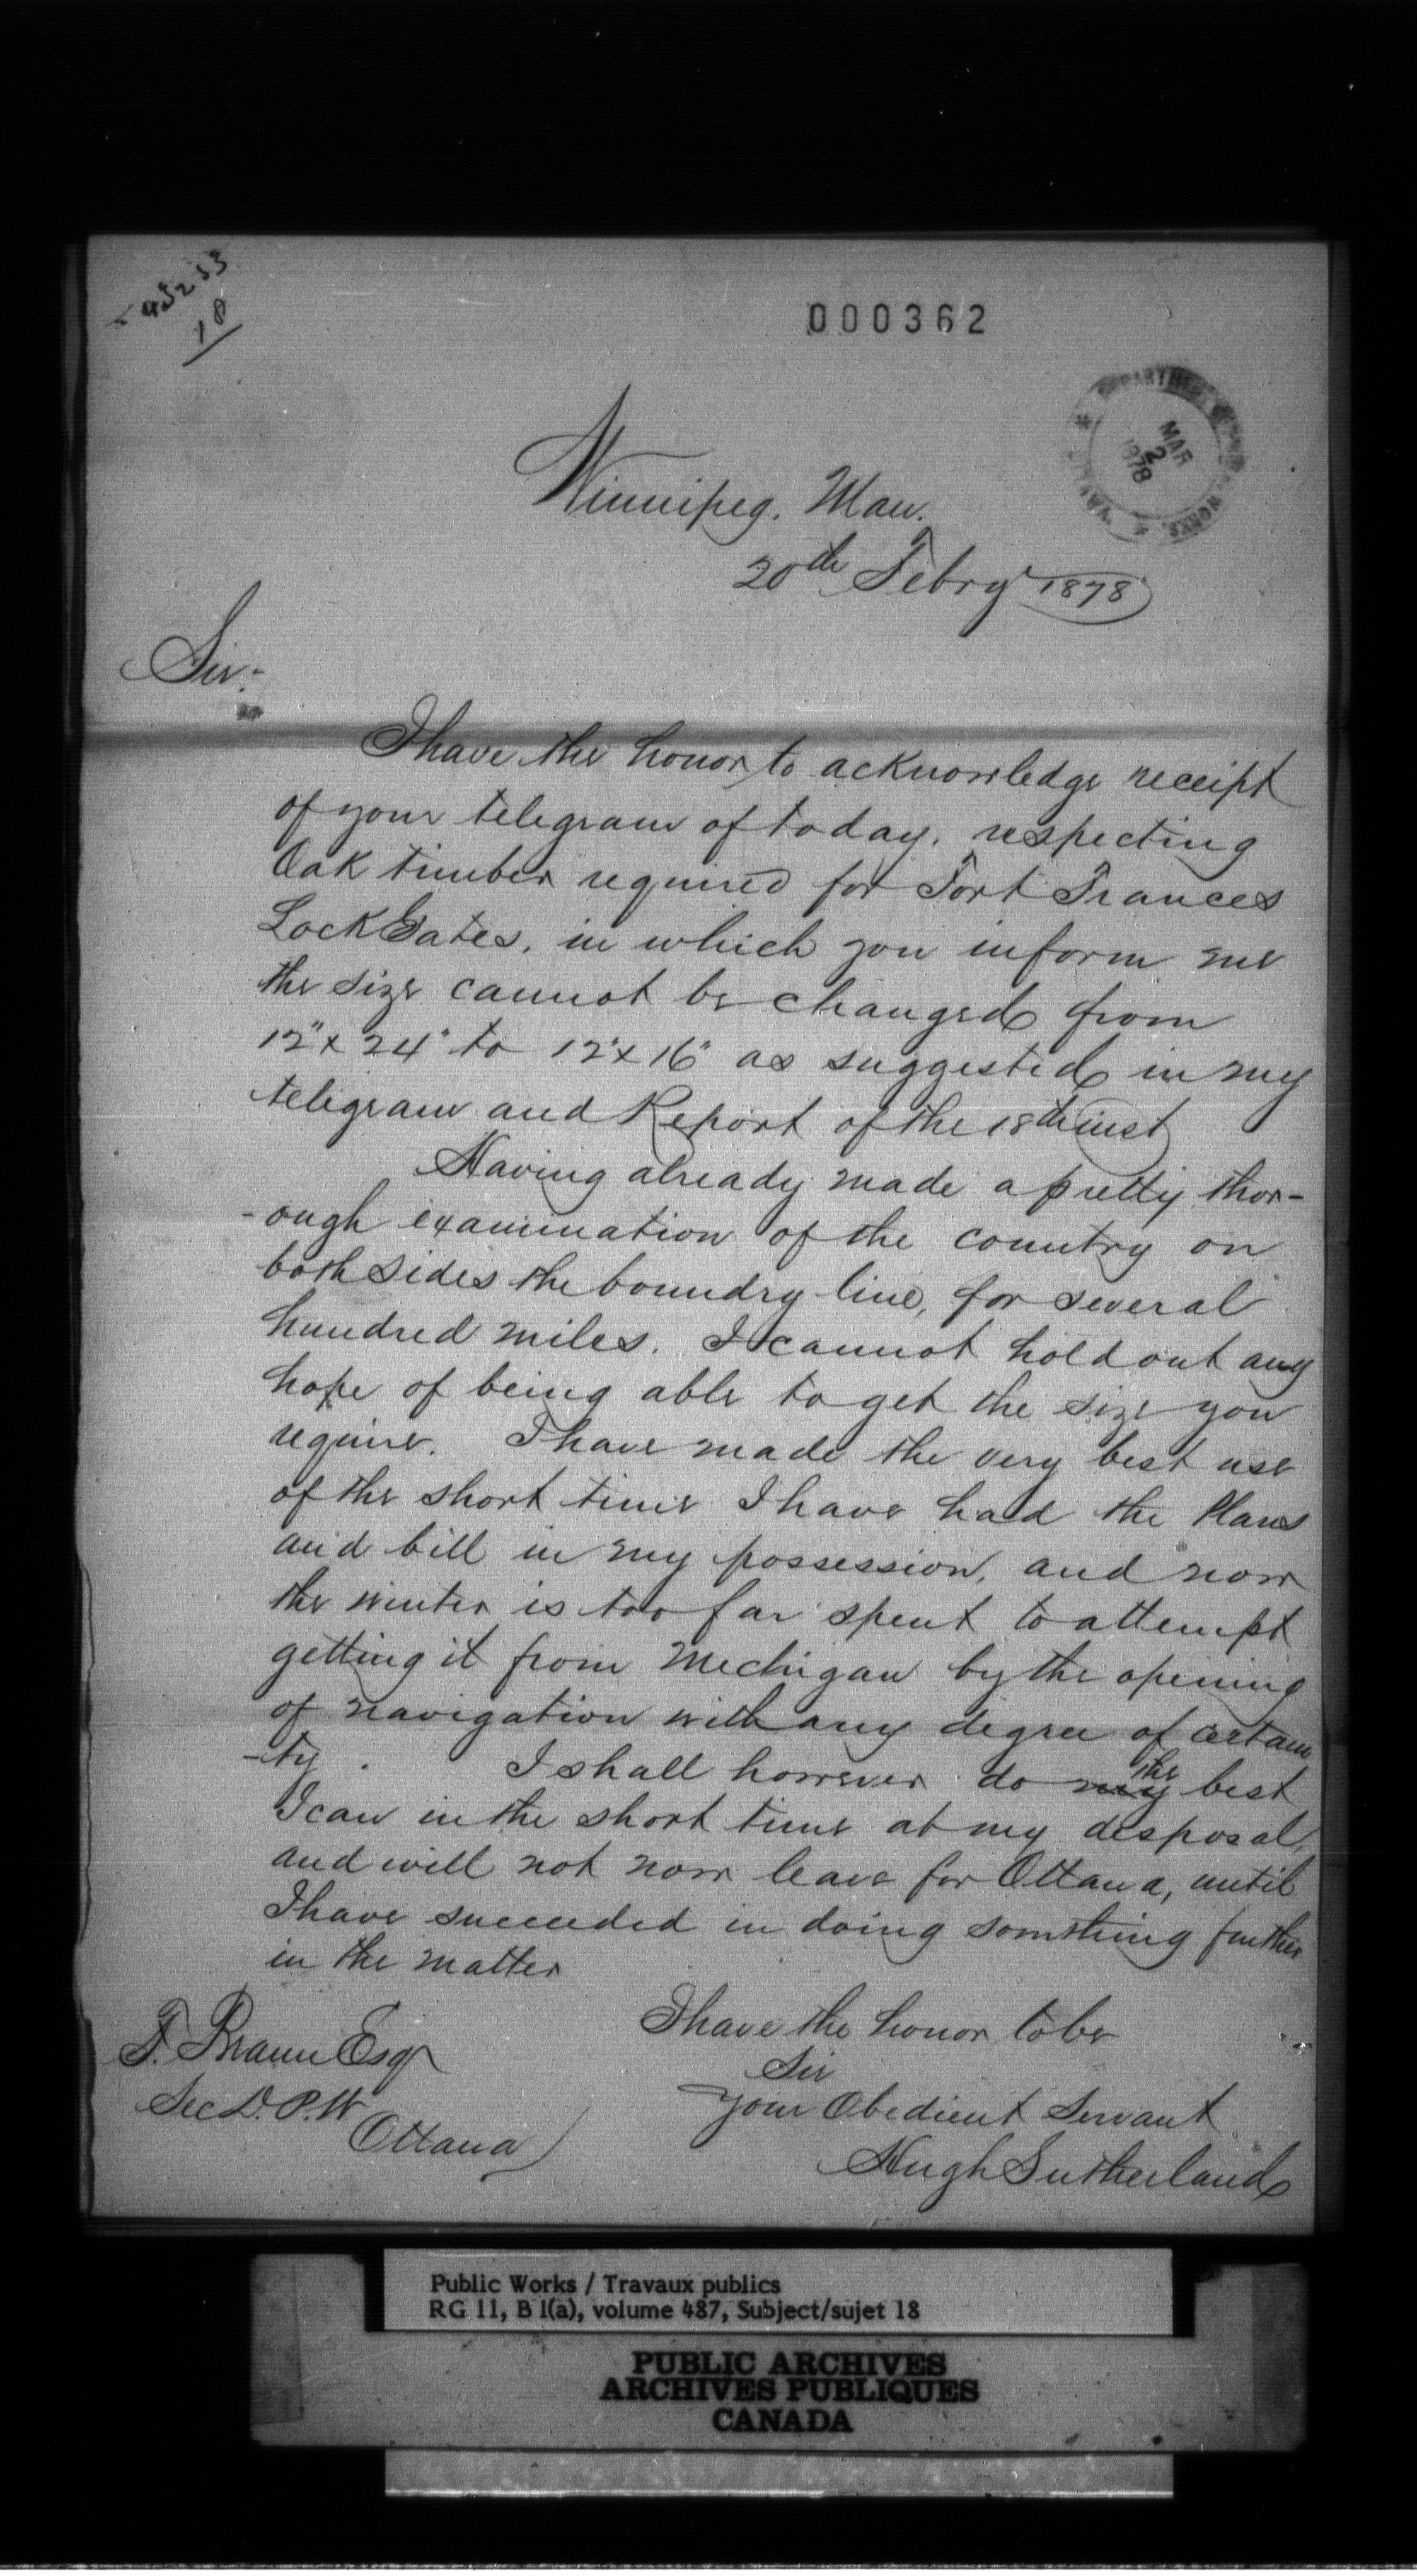 45253
18
000362
DEPARTMENT OF PUBLIC WORKS
MAR
2
1878
Winnipeg. Man.
20th Febry 1878
Sir:-
I have the honor to acknowledge receipt
of your telegram of today, respecting
Oak timber required for Fort Frances
Lock Gates, in which you inform me
the size cannot be changed from
12"x 24" to 12"x 16" as suggested in my
telegram and Report of the 18th inst
Having already made a pretty thor-
-ough examination of the country on
both sides the boundry line, for several
hundred miles. I cannot hold out any
hope of being able to get the size you
require. I have made the very best use
of the short time I have had the Plans
and bill in my possession, and now
the winter is too far spent to attempt
getting it from Mechigan by the opening
of navigation with any degree of certain
-ty. I shall however do my the best
I can in the short time at my desposal,
and will not now leave for Ottawa, until
I have succeeded in doing somthing further
in the matter
I have the honor to be
Sir
Your Obedient Servant
Hugh Sutherland
F. Braun Esqr
Sec D. P. W
Ottawa
Public Works / Travaux publics
RG 11, B 1(a), volume 487, Subject/sujet 18
PUBLIC ARCHIVES
ARCHIVES PUBLIQUES
CANADA